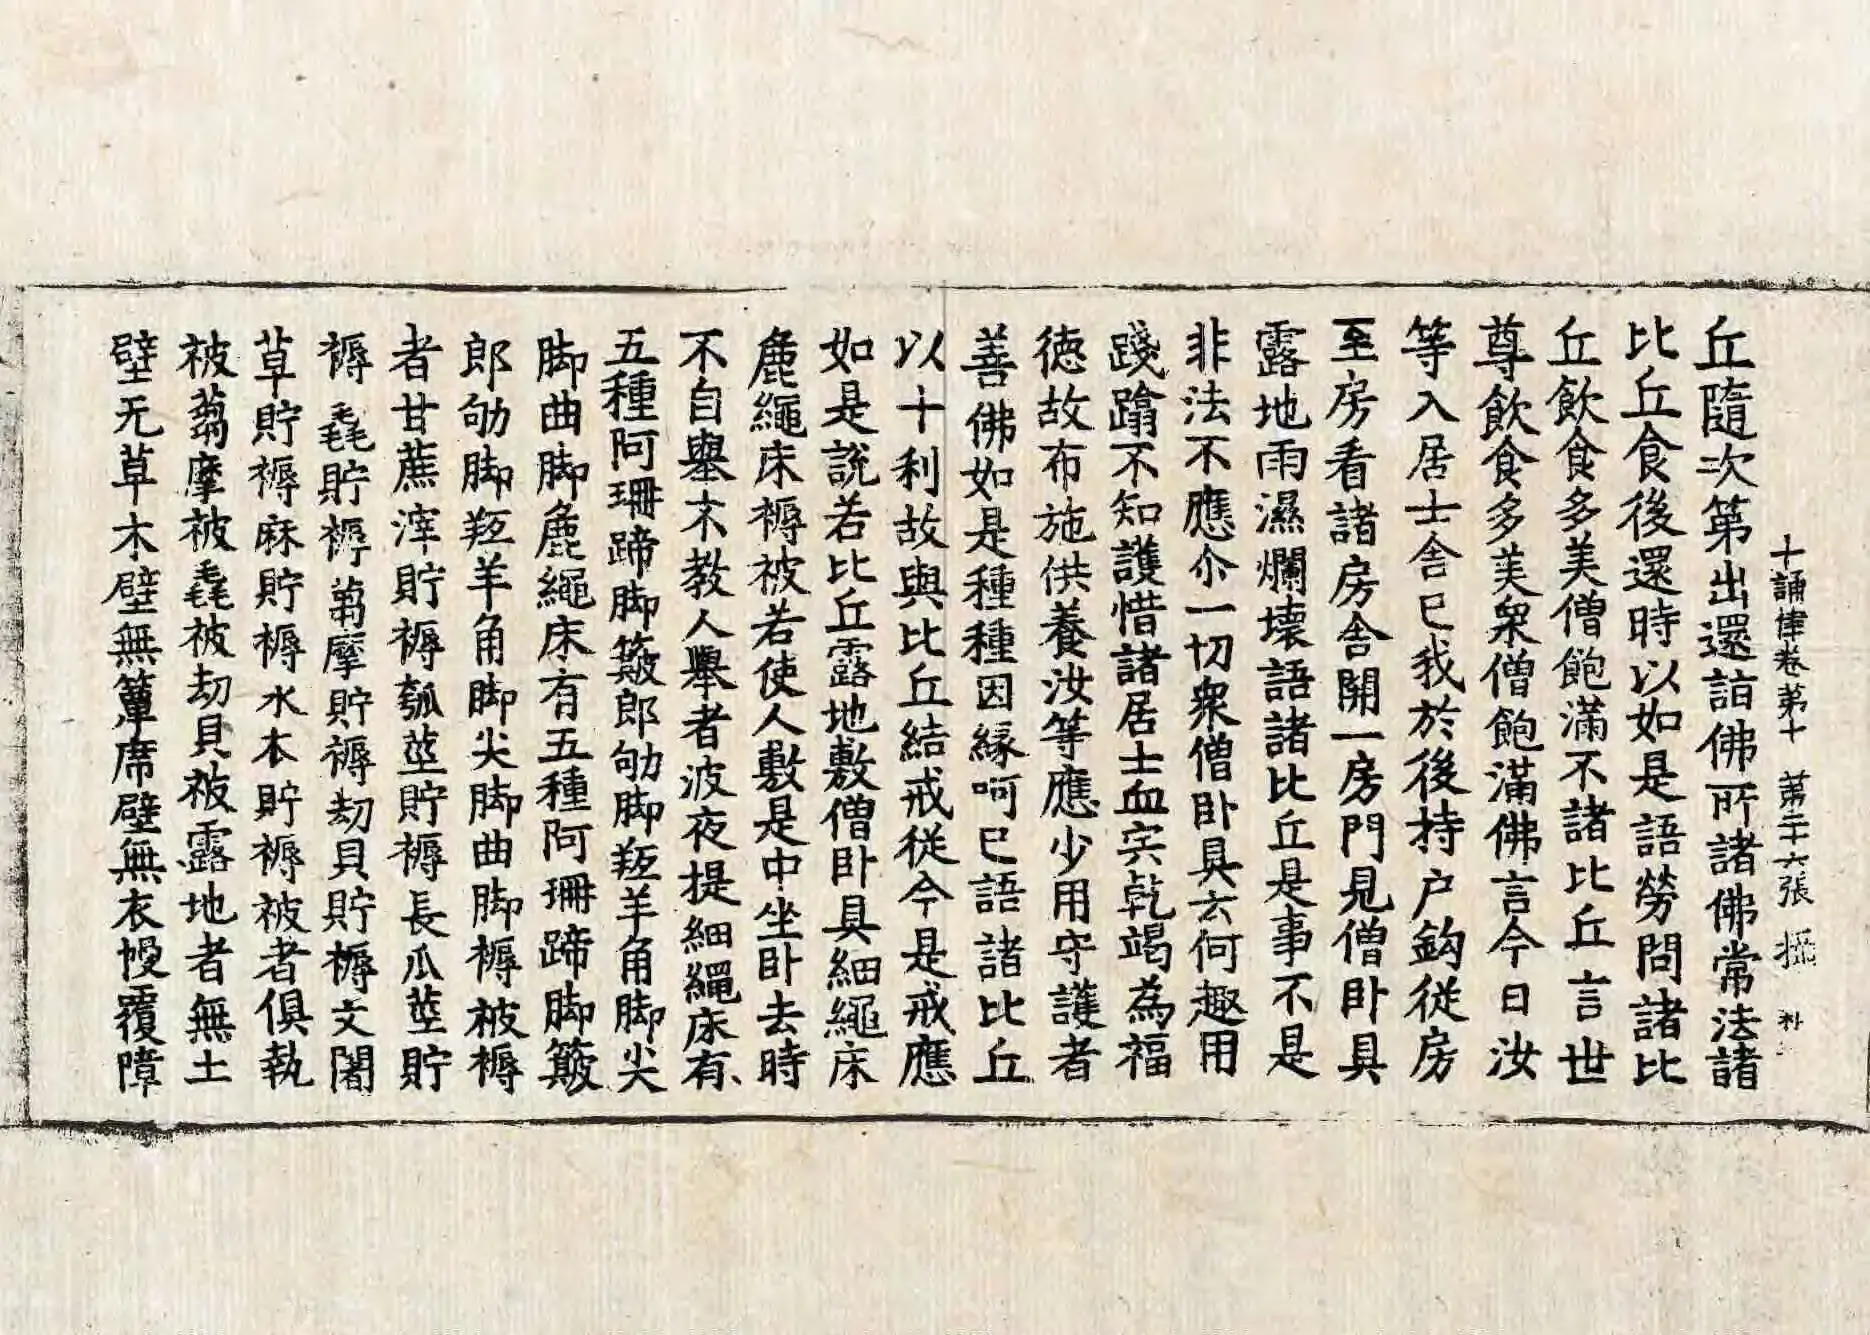 十誦律卷第十 第二十六張 攝
丘隨次第出還詣佛所諸佛常法諸
比丘食後還時以如是語勞問諸比
丘飲食多美僧飽滿不諸比丘言世
尊飲食多美衆僧飽滿佛言今日汝
等入居士舍已我於後持户鈎從房
至房看諸房舍開一房門見僧卧具
露地雨濕爛壞語諸比丘是事不是
非法不應尒一切衆僧卧具云何趣用
踐蹹不知護惜諸居士血宍乹竭為福
德故布施供養汝等應少用守護者
善佛如是種種因緣呵已語諸比丘
以十利故與比丘結戒從今是戒應
如是說若比丘露地敷僧卧具細繩床
麁繩床褥被若使人敷是中坐卧去時
不自舉不教人舉者波夜提細繩床有
五種阿珊蹄脚簸郎劬脚羝羊角脚尖
脚曲脚麁繩床有五種阿珊蹄脚簸
郎劬脚羝羊角脚尖脚曲脚褥被褥
者甘蔗滓貯褥瓠莖貯褥長瓜莖貯
褥毳貯褥蒭摩貯褥劫貝貯褥文闍
草貯褥麻貯褥水本貯褥被者俱執
被蒭摩被毳被劫貝被露地者無土
壁无草木壁無簟席壁無衣幔覆障